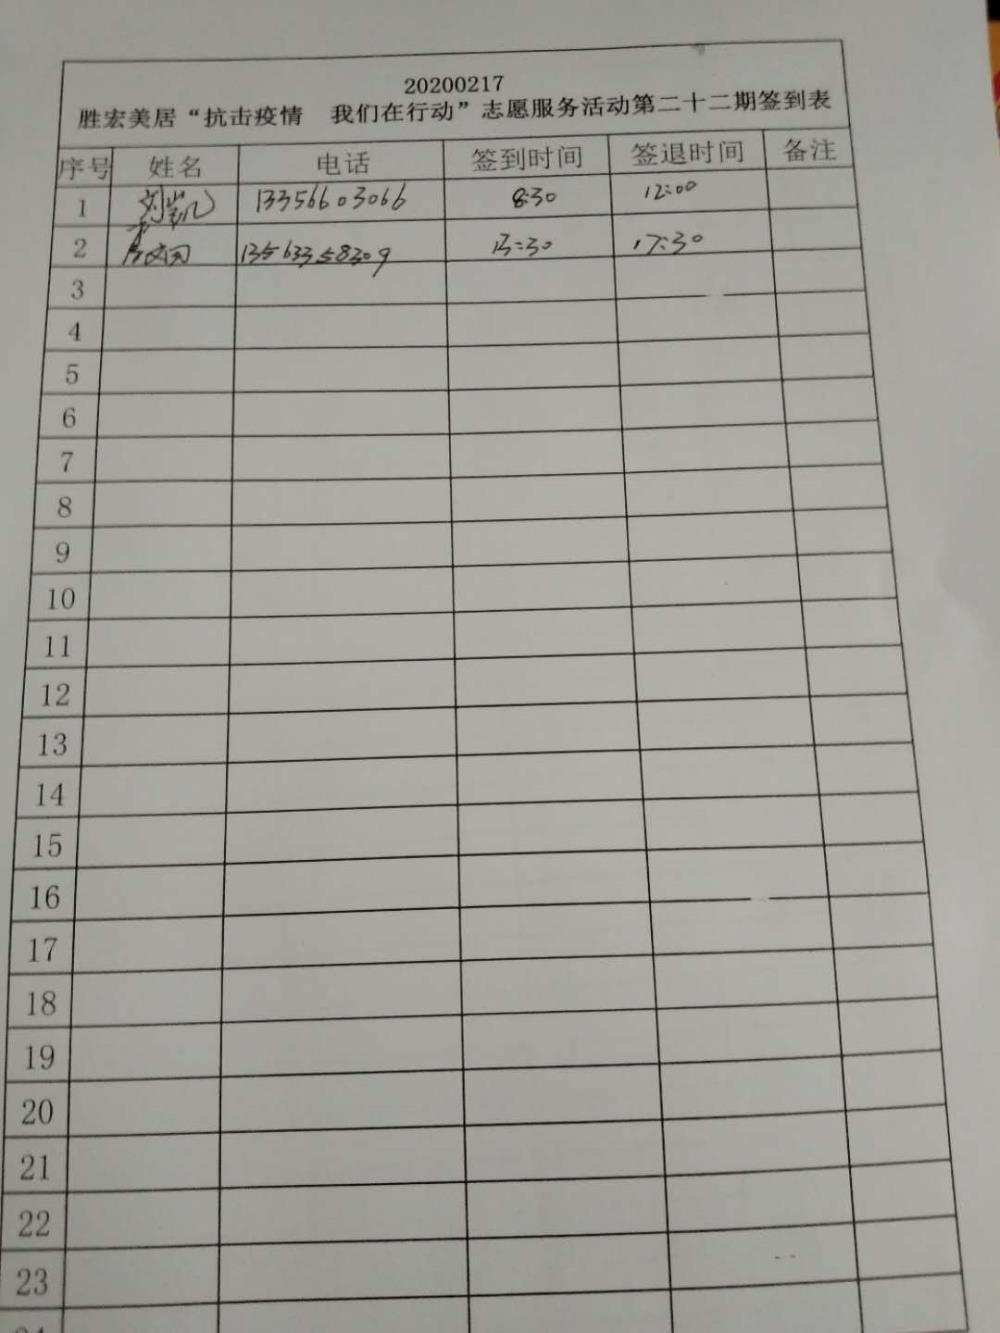 20200217
胜宏美居“抗击疫情 我们在行动”志愿服务活动第二十二期签到表
序号 姓名 电话 签到时间 签退时间 备注
1 刘凯 13356603066 8:30 12:00
2 13563358309 13:30 17:30
3
4
5
6
7
8
9
10
11
12
13
14
15
16
17
18
19
20
21
22
23